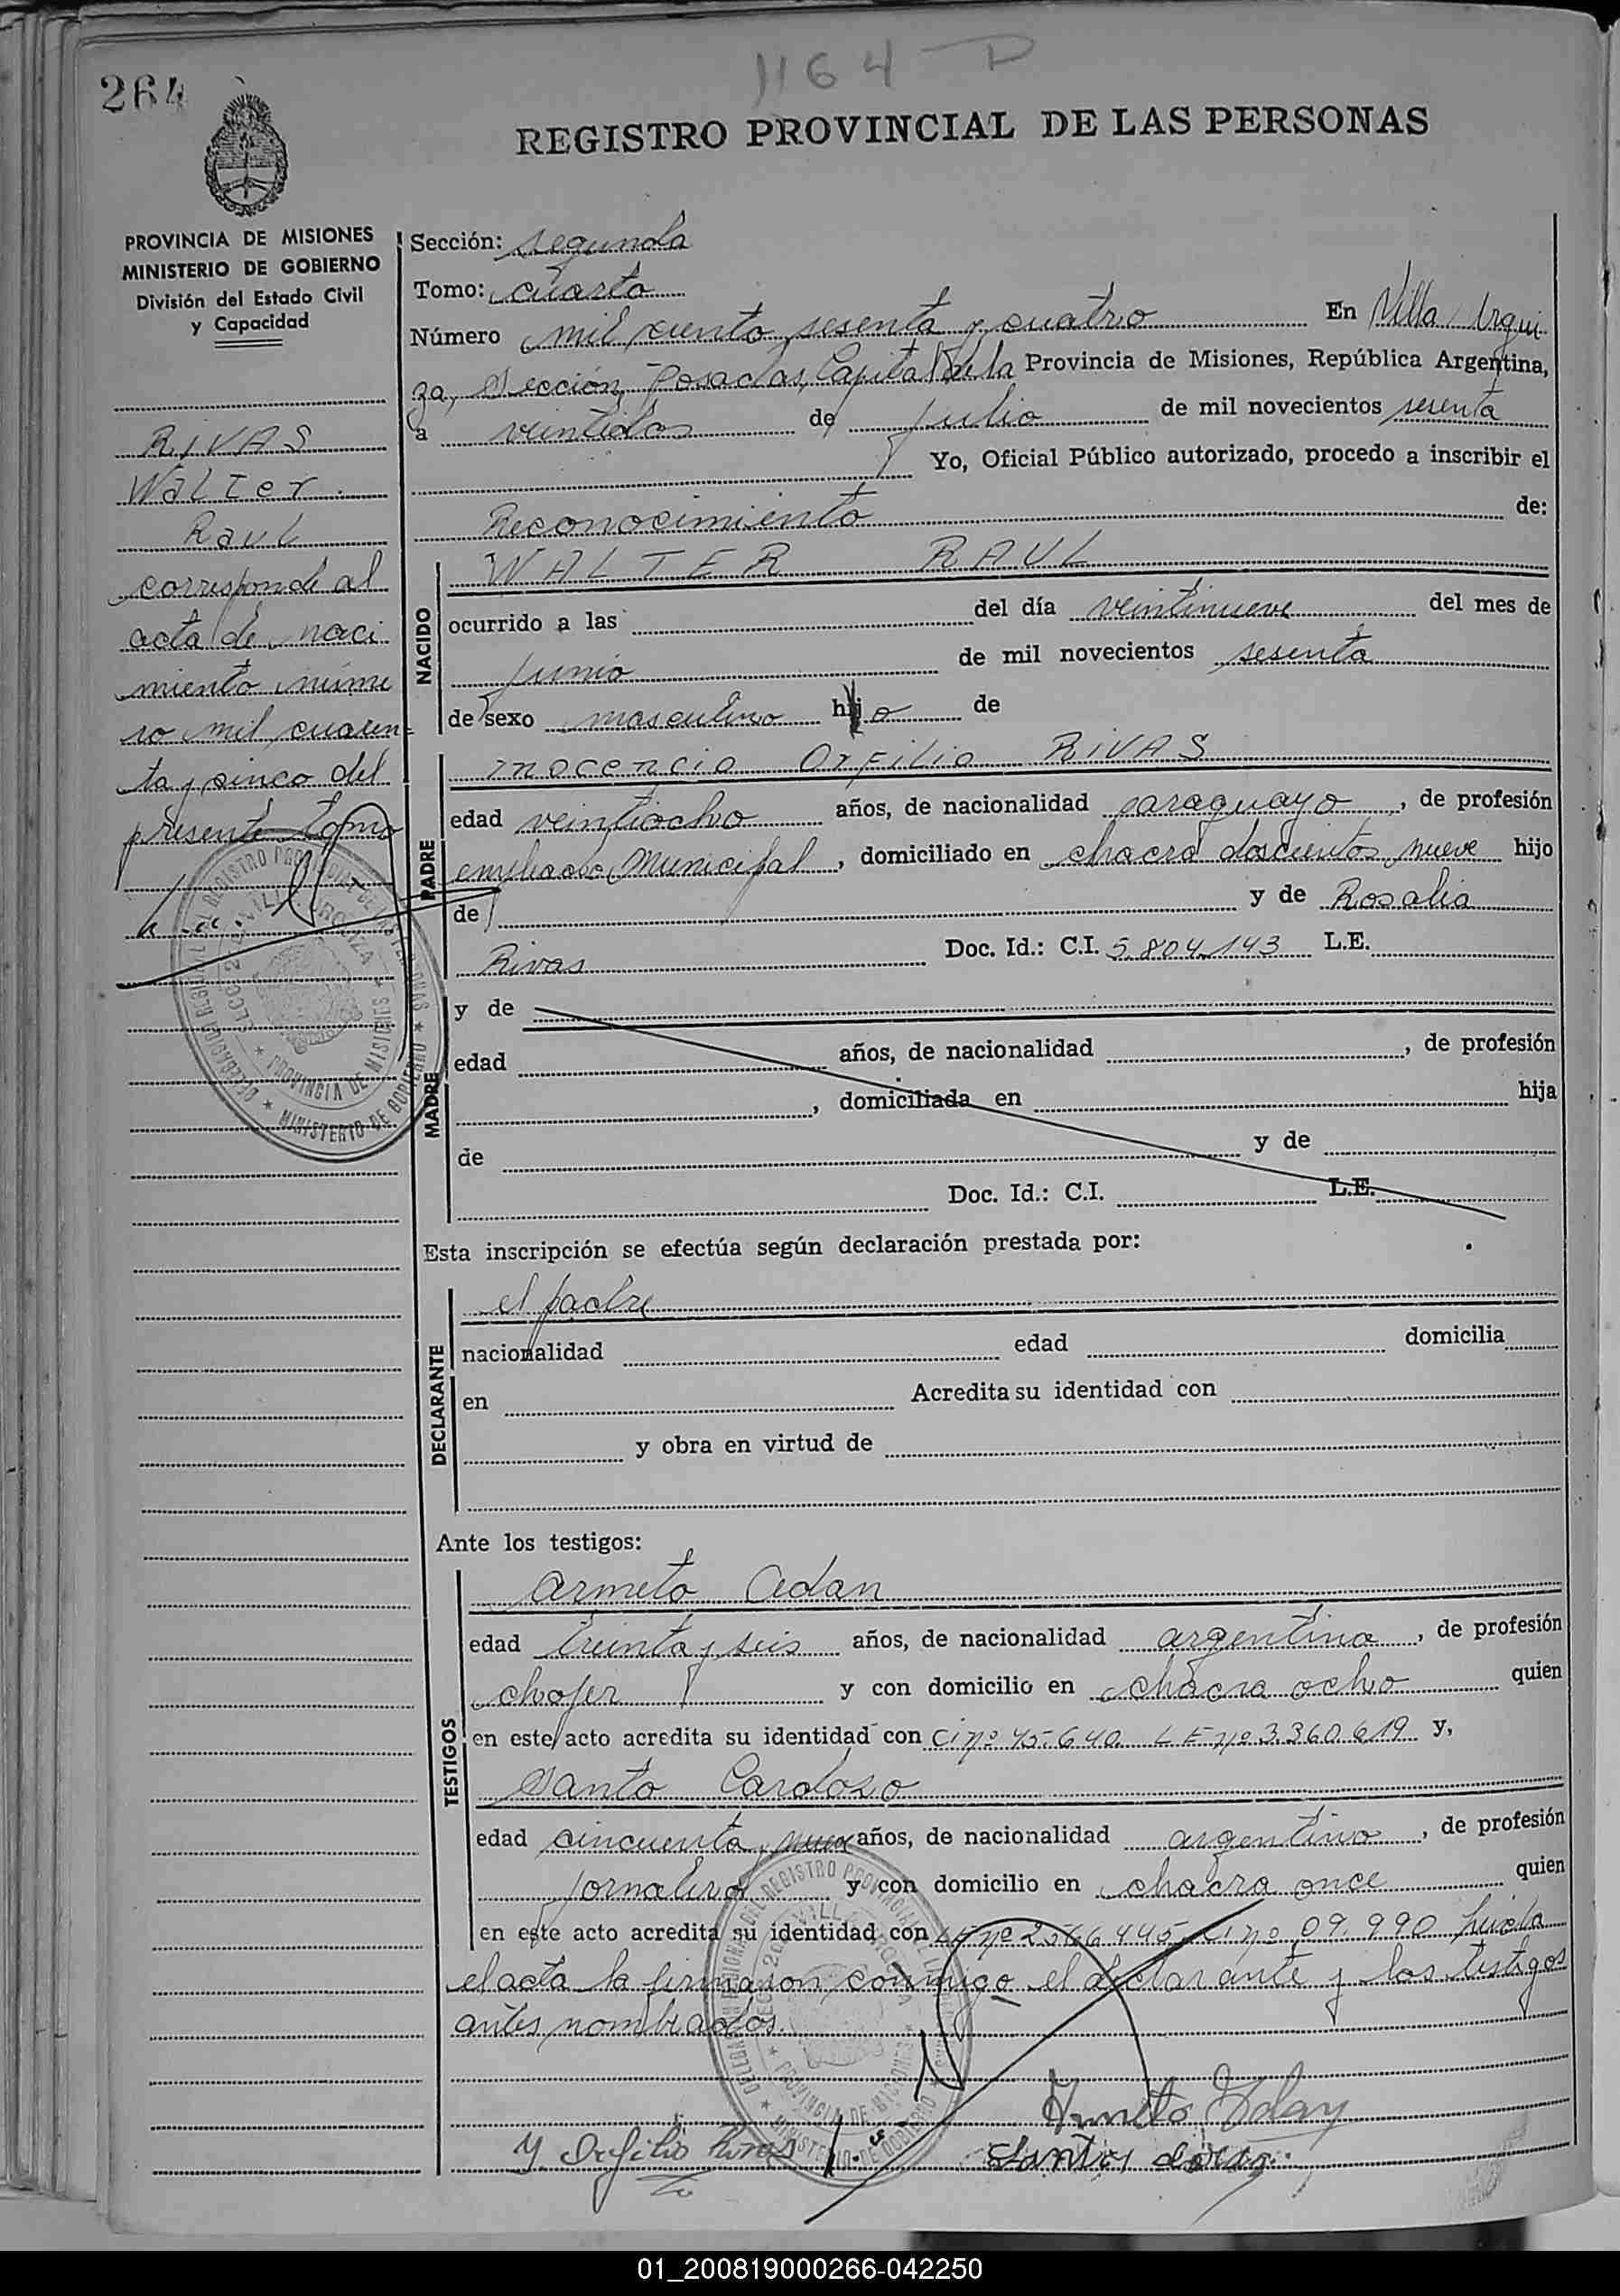 264
1164 P
REGISTRO PROVINCIAL DE LAS PERSONAS
PROVINCIA DE MISIONES
MINISTERIO DE GOBIERNO
División del Estado Civil
y Capacidad
RIVAS
Walter
Raul
corresponde al
acta de naci
miento núme
ro mil cuaren=
ta y cinco del
presente tomo
Sección: segunda
Tomo: cuarto
Número mil ciento sesenta y cuatro En Villa Urqui
za, Sección Posadas, Capital de la Provincia de Misiones, República Argentina,
a veintidos de julio de mil novecientos sesenta
Yo, Oficial Público autorizado, procedo a inscribir el
Reconocimiento de:
NACIDO
WALTER RAUL
ocurrido a las del día veintinueve del mes de
junio de mil novecientos sesenta
de sexo masculino hijo de
PADRE
inocencio Orfilio RIVAS
edad veintiocho años, de nacionalidad paraguayo, de profesión
empleado Municipal, domiciliado en chacra doscientos nueve hijo
de y de Rosalia
Rivas Doc. Id.: C.I. 5.804.143 L.E.
MADRE
y de
edad años, de nacionalidad , de profesión
, domiciliada en hija
de y de
Doc. Id.: C.I. L.E.
Esta inscripción se efectúa según declaración prestada por:
DECLARANTE
el padre
nacionalidad edad domicilia
en Acredita su identidad con
y obra en virtud de
Ante los testigos:
TESTIGOS
Armeto Adan
edad treinta y seis años, de nacionalidad argentina, de profesión
chofer y con domicilio en chacra ocho quien
en este acto acredita su identidad con Ci nº 45.640 LE nº 3.360.619 y,
Santo Cardozo
edad cincuenta y nueve años, de nacionalidad argentino, de profesión
jornalero y con domicilio en chacra once quien
en este acto acredita su identidad con LE nº 2566445 Ci nº 09.990 Leida
el acta la firmaron conmigo el declarante y los testigos
antes nombrados.
Y Orfilio Rivas
01_200819000266-042250